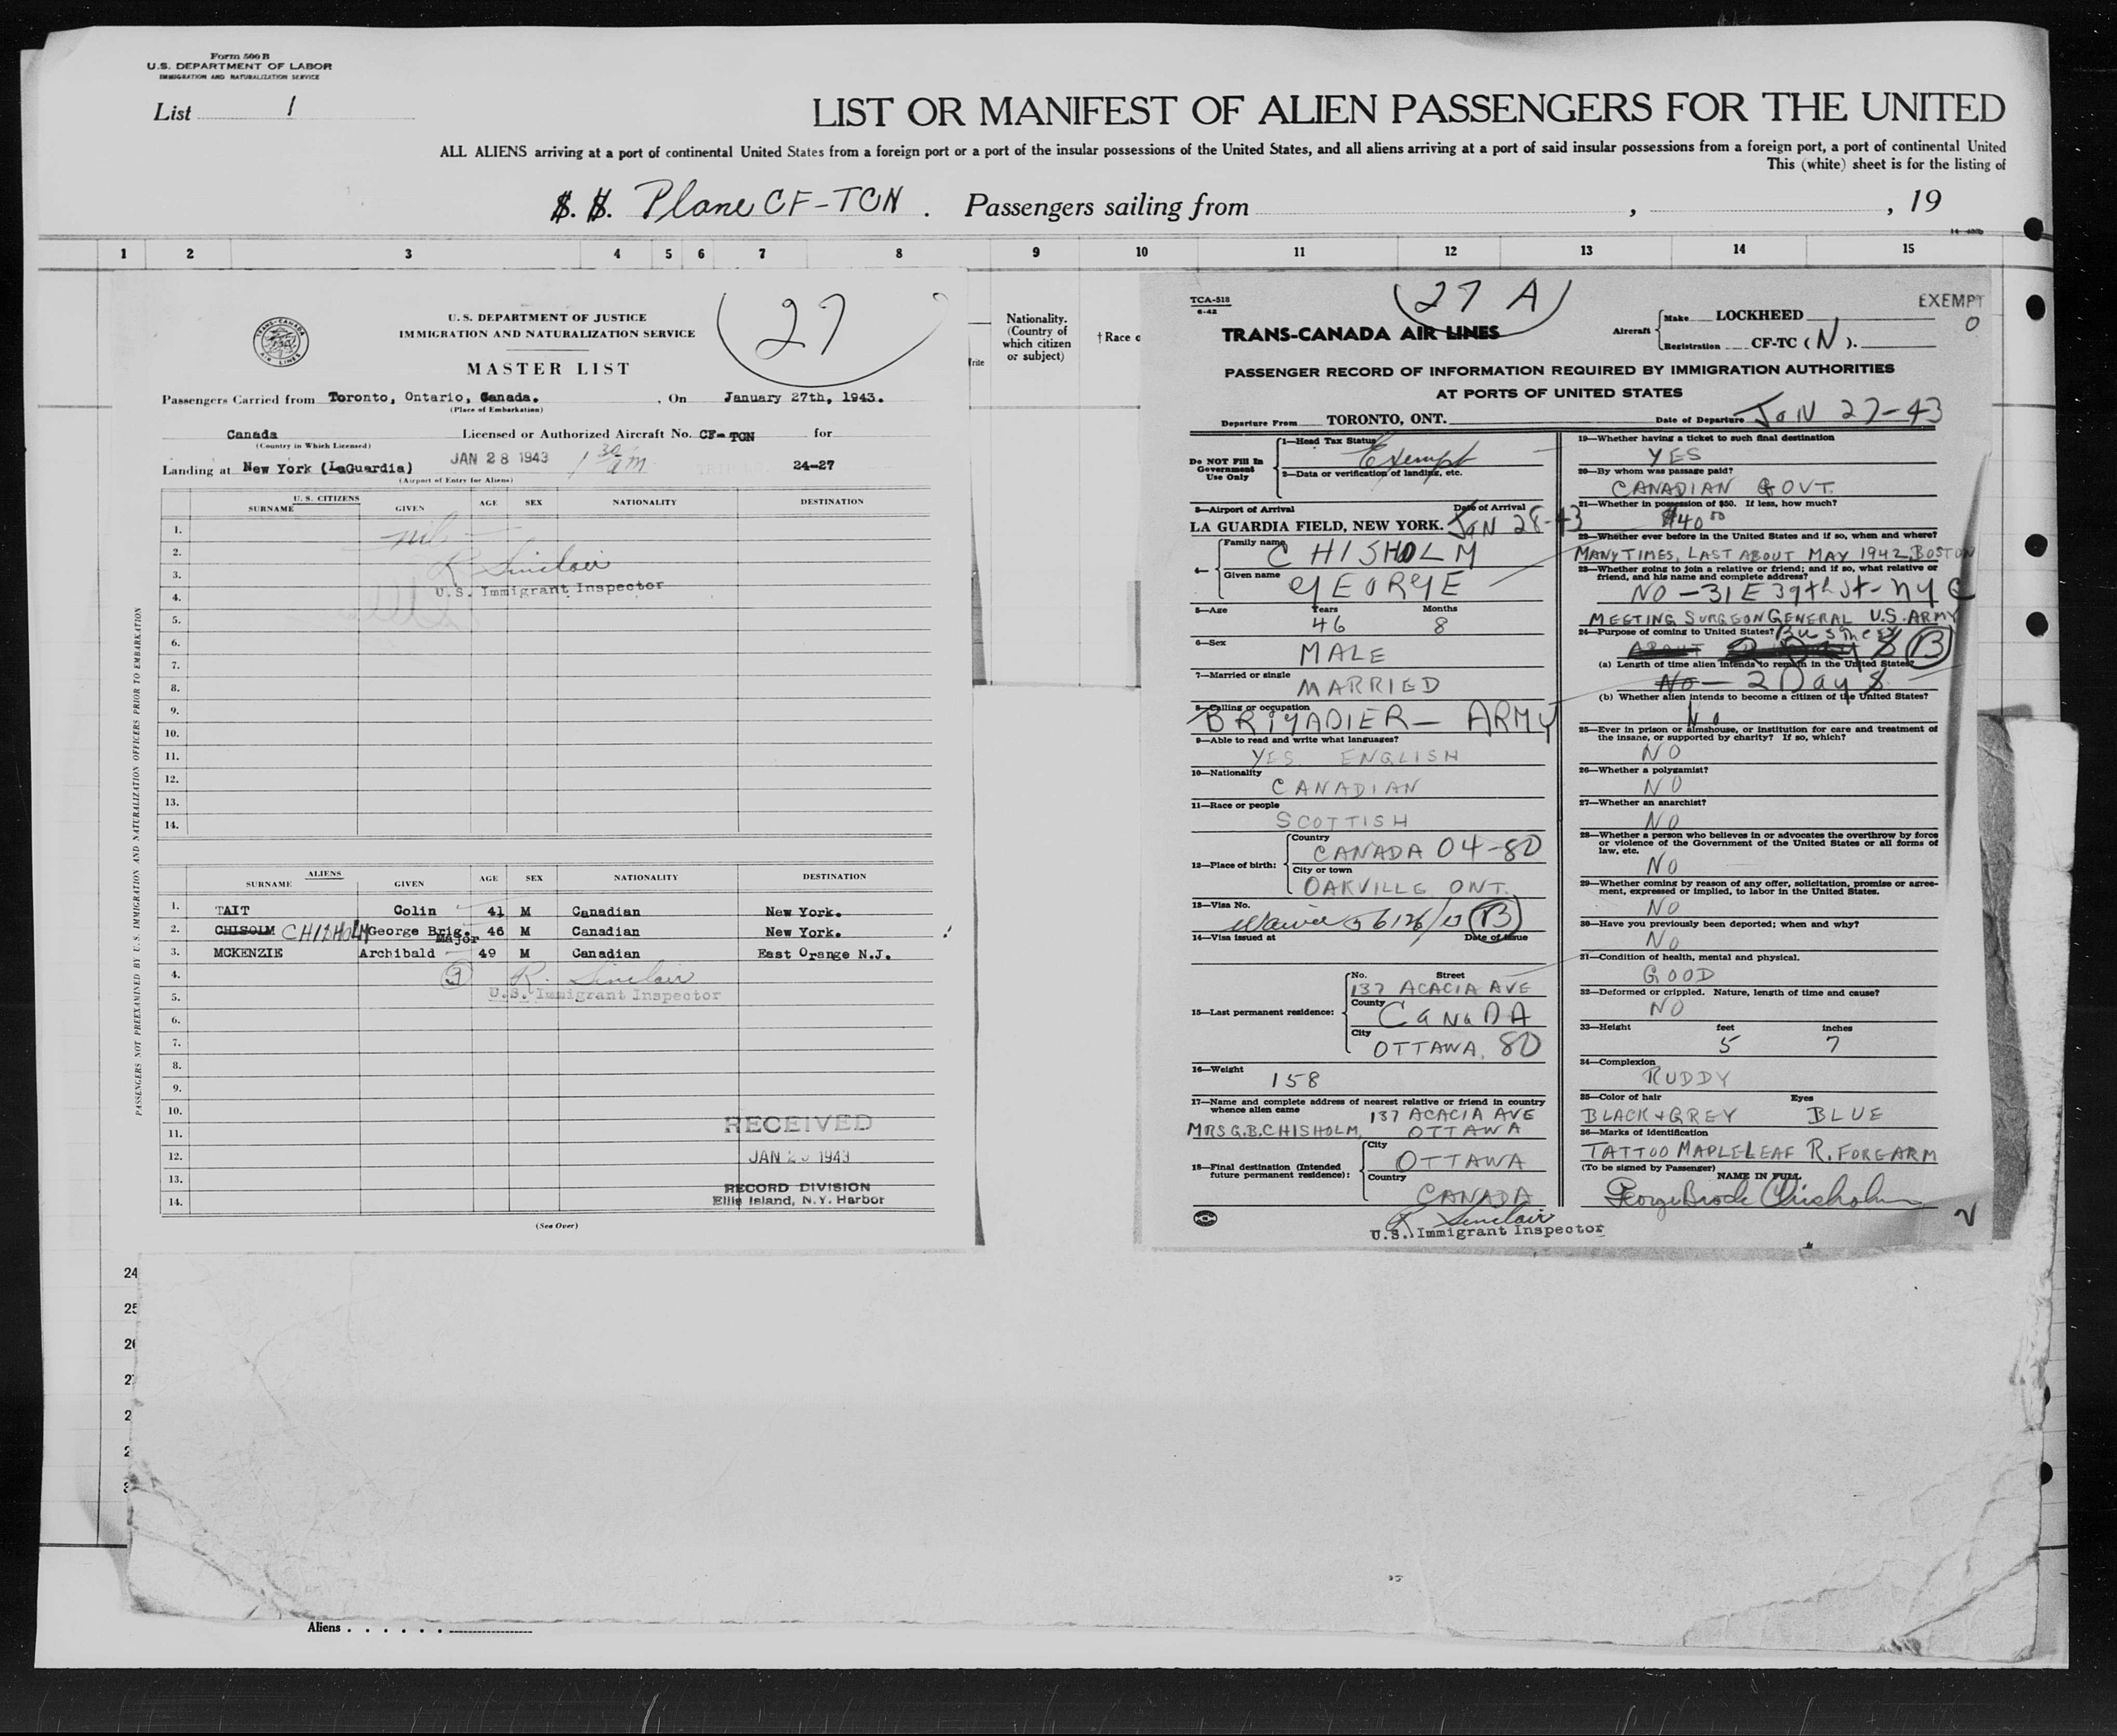 Form 500 B
U.S. DEPARTMENT OF LABOR
IMMIGRATION AND NATURALIZATION SERVICE
List 1
LIST OR MANIFEST OF ALIEN PASSENGERS FOR THE UNITED
ALL ALIENS arriving at a port of continental United States from a foreign port or a port of the insular possessions of the United States, and all aliens arriving at a port of said insular possessions from a foreign port, a port of continental United
This (white) sheet is for the listing of
S. S. Plane CF-TCN. Passengers sailing from , , 19
1 2 3 4 5 6 7 8 9 10 11 12 13 14 15
27
U. S. DEPARTMENT OF JUSTICE
IMMIGRATION AND NATURALIZATION SERVICE
MASTER LIST
Passengers Carried from Toronto, Ontario, Canada. , On January 27th, 1943.
(Place of Embarkation)
Canada Licensed or Authorized Aircraft No. CF-TCN for
(Country in Which Licensed)
Landing at New York (LaGuardia) JAN 28 1943 1 30 am 24-27
(Airport of Entry for Aliens)
U. S. CITIZENS
SURNAME GIVEN AGE SEX NATIONALITY DESTINATION
1. nil
2. R Sinclair
3.
4. U.S. Immigrant Inspector
5.
6.
7.
8.
9.
10.
11.
12.
13.
14.
ALIENS
SURNAME GIVEN AGE SEX NATIONALITY DESTINATION
1. TAIT Colin 41 M Canadian New York.
2. CHISOLM CHISHOLM George Brig. 46 M Canadian New York.
Major
3. MCKENZIE Archibald 49 M Canadian East Orange N.J.
4. 3 R. Sinclair
5. U.S. Immigrant Inspector
6.
7.
8.
9.
10.
11. RECEIVED
12. JAN 1943
13.
RECORD DIVISION
14. Ellis Island, N.Y. Harbor
(See Over)
PASSENGERS NOT PREEXAMINED BY U.S. IMMIGRATION AND NATURALIZATION OFFICERS PRIOR TO EMBARKATION
Nationality.
(Country of
which citizen
or subject)
† Race o
24
25
26
Aliens . . . . . .
27 A
TCA-518
6-42
EXEMPT
0
TRANS-CANADA AIR LINES
Aircraft Make LOCKHEED
Registration CF-TC ( N ).
PASSENGER RECORD OF INFORMATION REQUIRED BY IMMIGRATION AUTHORITIES
AT PORTS OF UNITED STATES
Departure From TORONTO, ONT. Date of Departure JAN 27-43
Do NOT Fill In
Government
Use Only
1—Head Tax Status Exempt
2—Data or verification of landing, etc.
3—Airport of Arrival Date of Arrival
LA GUARDIA FIELD, NEW YORK. JAN 28-43
4— Family name CHISHOLM
Given name GEORGE
5—Age Years Months
46 8
6—Sex
MALE
7—Married or single
MARRIED
8—Calling or occupation
BRIGADIER — ARMY
9—Able to read and write what languages?
YES ENGLISH
10—Nationality
CANADIAN
11—Race or people
SCOTTISH
12—Place of birth: Country
CANADA 04-80
City or town
OAKVILLE ONT.
13—Visa No.
B
14—Visa issued at Date of Issue
15—Last permanent residence: No. Street
137 ACACIA AVE
County
CANADA
City
OTTAWA, 80
16—Weight
158
17—Name and complete address of nearest relative or friend in country
whence alien came 137 ACACIA AVE
MRS G.B. CHISHOLM, OTTAWA
18—Final destination (Intended
future permanent residence): City
OTTAWA
Country
CANADA
R Sinclair
U.S. Immigrant Inspector
19—Whether having a ticket to such final destination
YES
20—By whom was passage paid?
CANADIAN GOVT.
21—Whether in possession of $50. If less, how much?
$40 00
22—Whether ever before in the United States and if so, when and where?
MANY TIMES, LAST ABOUT MAY 1942, BOSTON
23—Whether going to join a relative or friend; and if so, what relative or
friend, and his name and complete address?
NO — 31 E 39th St - NYC
MEETING SURGEON GENERAL U.S. ARMY
24—Purpose of coming to United States? Business
B
(a) Length of time alien intends to remain in the United States?
No — 2 Days
(b) Whether alien intends to become a citizen of the United States?
No
25—Ever in prison or almshouse, or institution for care and treatment of
the insane, or supported by charity? If so, which?
NO
26—Whether a polygamist?
NO
27—Whether an anarchist?
NO
28—Whether a person who believes in or advocates the overthrow by force
or violence of the Government of the United States or all forms of
law, etc.
NO
29—Whether coming by reason of any offer, solicitation, promise or agree-
ment, expressed or implied, to labor in the United States.
NO
30—Have you previously been deported; when and why?
NO
31—Condition of health, mental and physical.
GOOD
32—Deformed or crippled. Nature, length of time and cause?
NO
33—Height feet inches
5 7
34—Complexion
RUDDY
35—Color of hair Eyes
BLACK & GREY BLUE
36—Marks of identification
TATTOO MAPLELEAF R. FOREARM
(To be signed by Passenger) NAME IN FULL
George Brock Chisholm